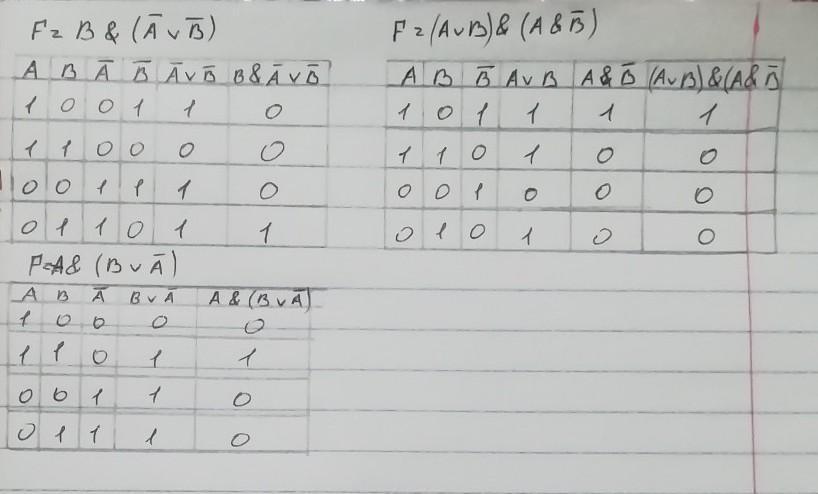 F = B & (A̅ ∨ B̅)
A B A̅ B̅ A̅ ∨ B̅ B & A̅ ∨ B̅
1 0 0 1 1 0
1 1 0 0 0 0
0 0 1 1 1 0
0 1 1 0 1 1
F = (A ∨ B) & (A & B̅)
A B B̅ A ∨ B A & B̅ (A ∨ B) & (A & B̅
1 0 1 1 1 1
1 1 0 1 0 0
0 0 1 0 0 0
0 1 0 1 0 0
F = A & (B ∨ A̅)
A B A̅ B ∨ A̅ A & (B ∨ A̅)
1 0 0 0 0
1 1 0 1 1
0 0 1 1 0
0 1 1 1 0